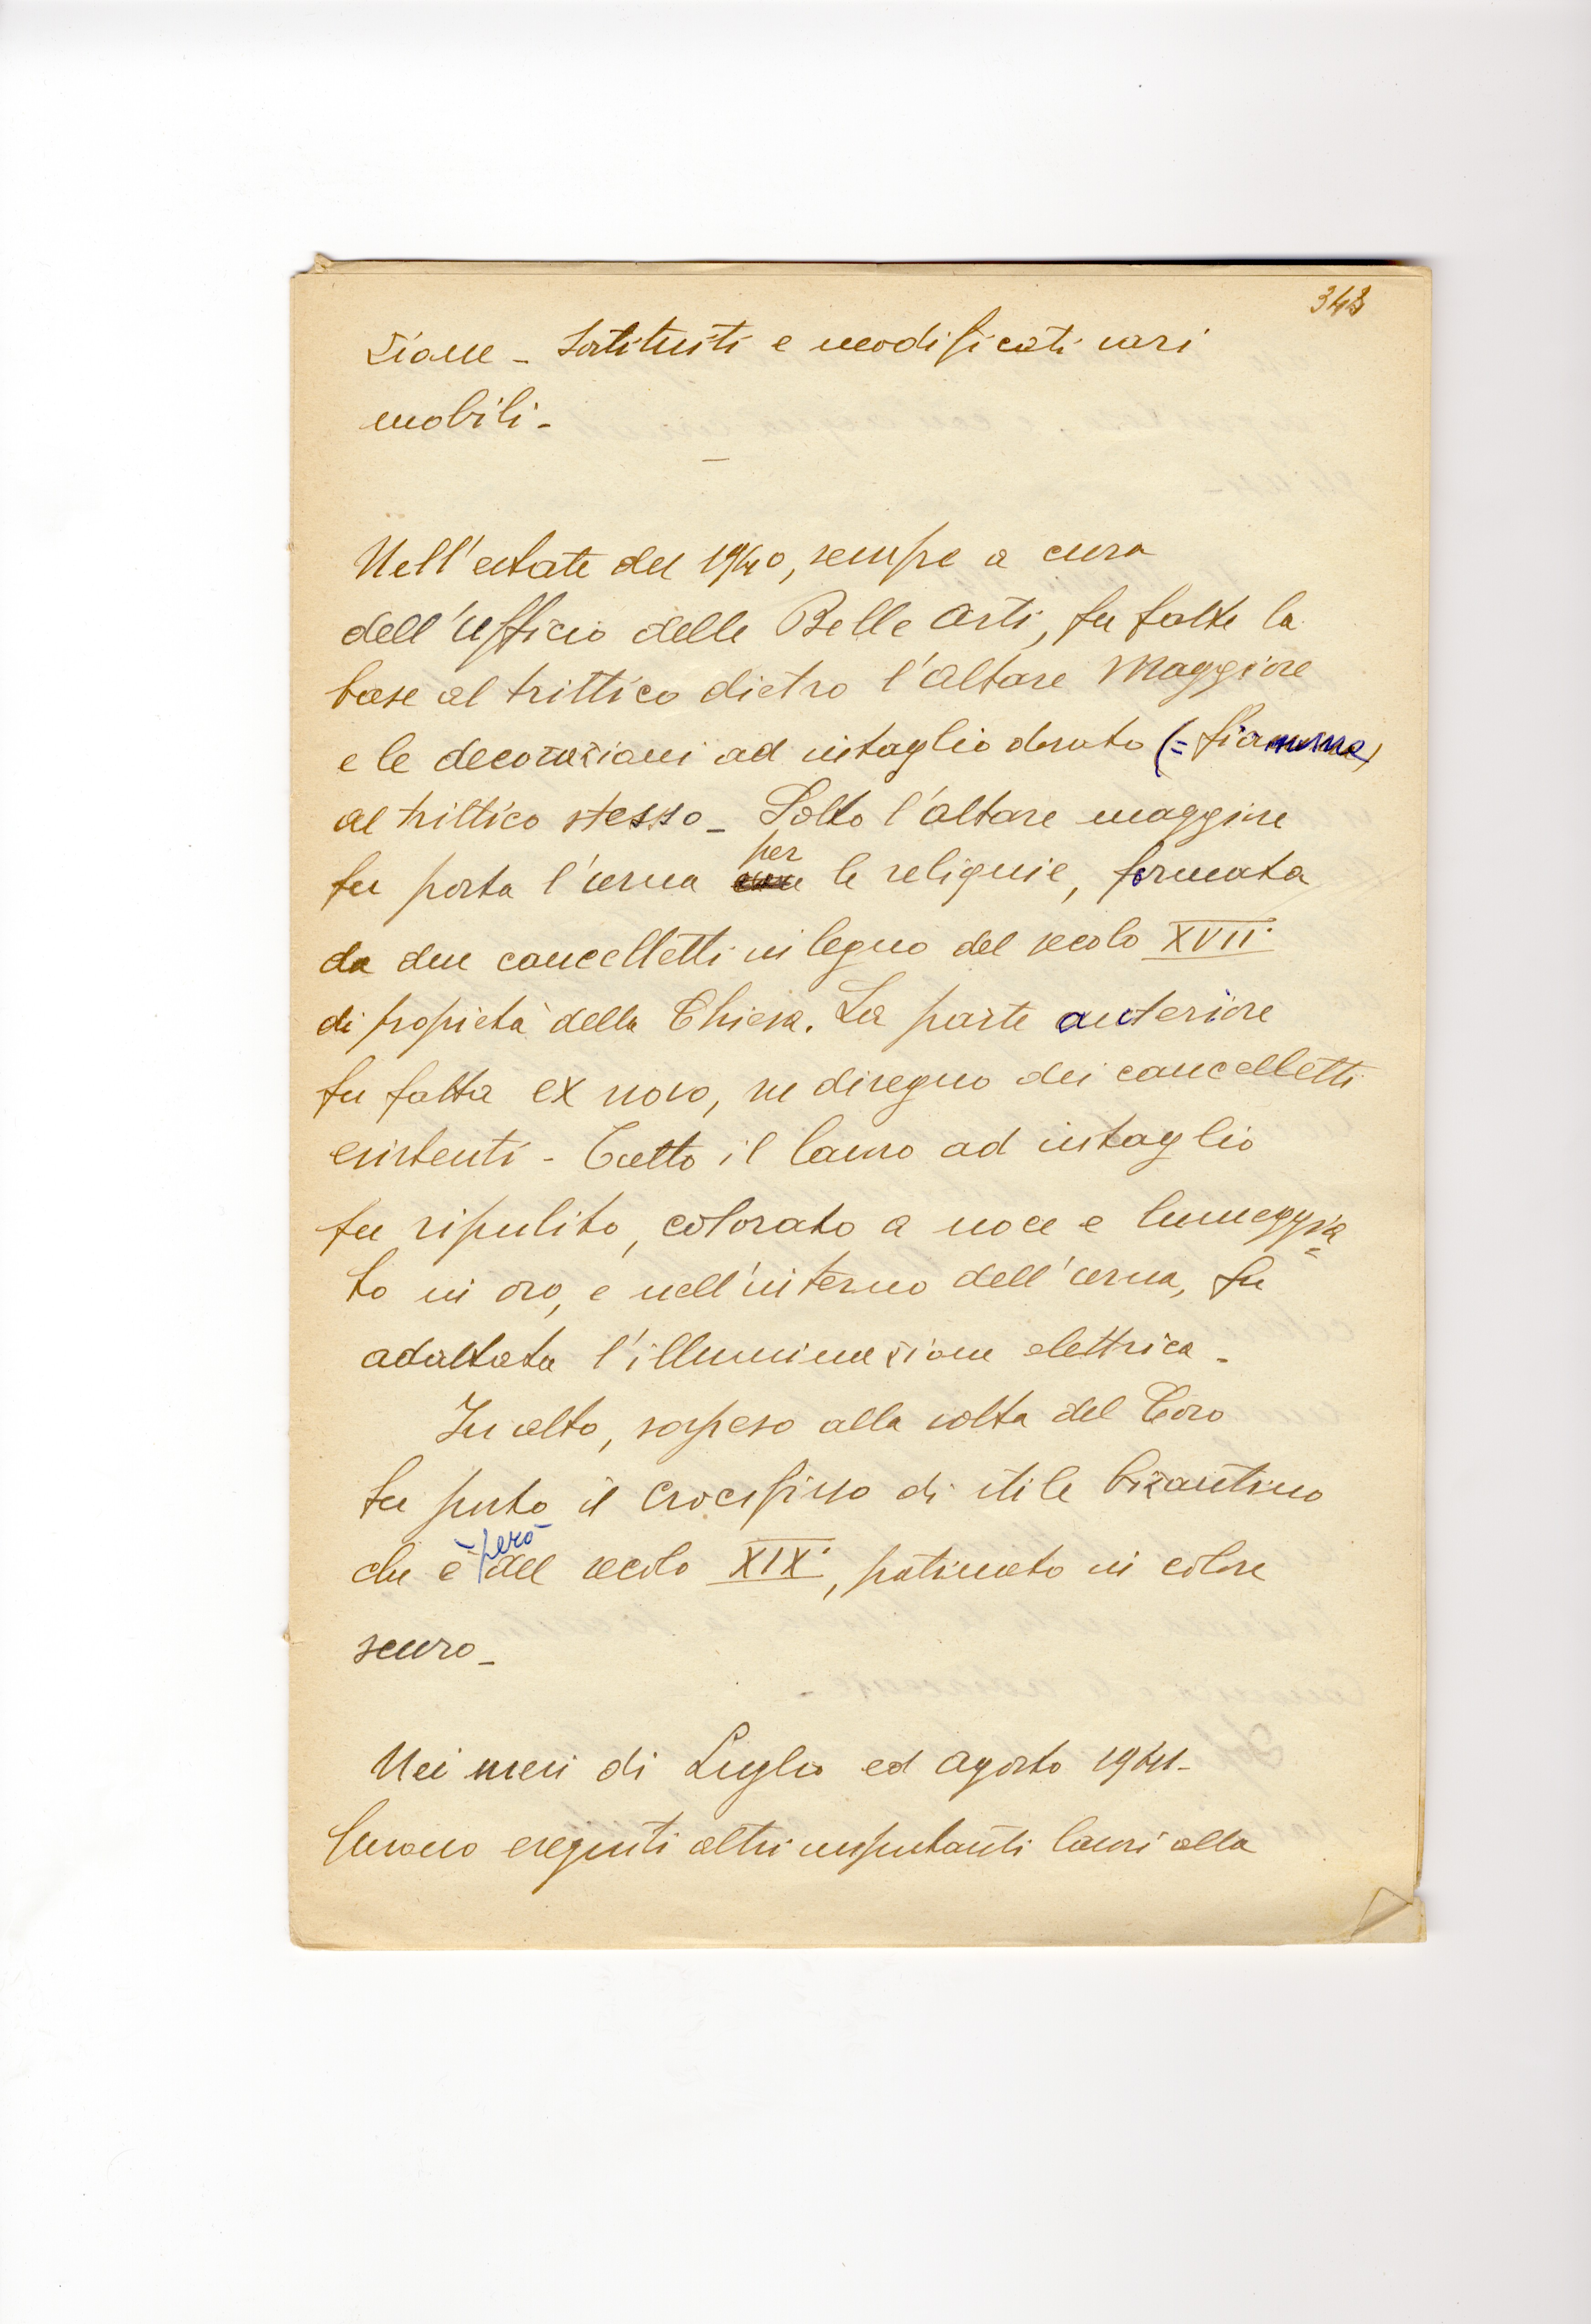 zione - Sostituiti e modificati vari
mobili -
Nell'estate del 1940, sempre a cura
dell'Ufficio delle Belle Arti, fu fatta la
base al trittico dietro l'Altare Maggiore
e le decorazioni ad intaglio dorato (= fiamme)
al trittico stesso - Sotto l'altare maggiore
per
fu posta l'urna le reliquie, formata
da due cancelletti in legno del secolo XVII.
di propietà della Chiesa. La parte anteriore
fu fatta ex novo, su disegno dei cancelletti
esistenti - Tutto il lavoro ad intaglio
fu ripulito, colorato a noce e lumeggia=
to in oro, e nell'interno dell'urna, fu
adattata l'illuminazione elettrica -
In alto, sospeso alla volta del Coro
fu posto il Crocifisso di stile bizantino
- però -
che è del secolo XIX., patinato in colore
scuro -
Nei mesi di Luglio ed Agosto 1941 -
furono eseguiti altri importanti lavori alla